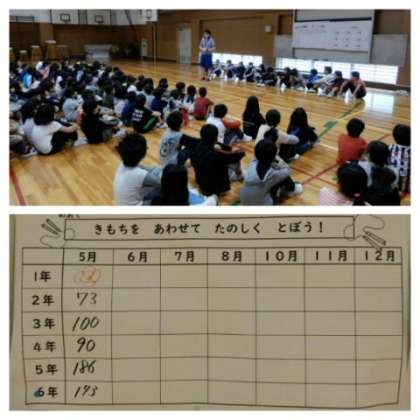 きもちを あわせて たのしく とぼう！
5月 6月 7月 8月 10月 11月 12月
1年
2年 73
3年 100
4年 90
5年 186
6年 173